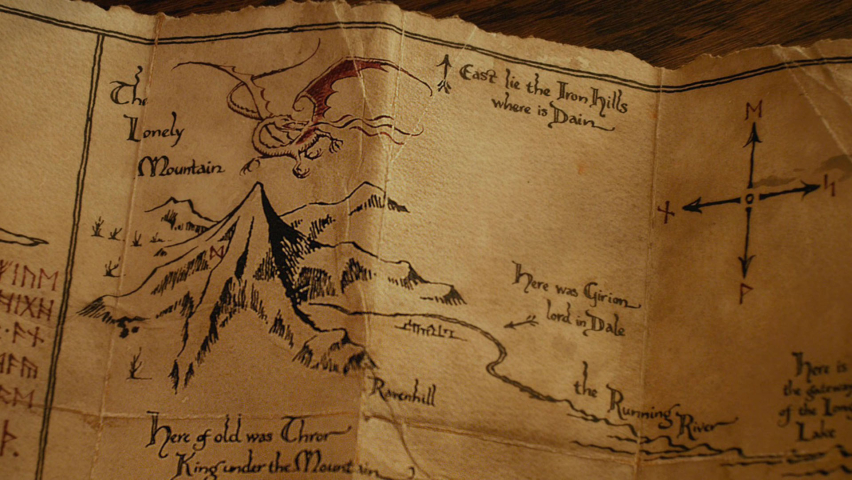 The
Lonely
Mountain
East lie the Iron Hills
where is Dain
ᛖ
ᚾ
ᛋ
ᚹ
ᛞ
ᚠᛁᚢᛖ
ᚻᛁᚷᚻ
Here was Girion
lord in Dale
Ravenhill
the Running River
Here is
the gateway
of the Long
Lake
Here of old was Thror
King under the Mountain